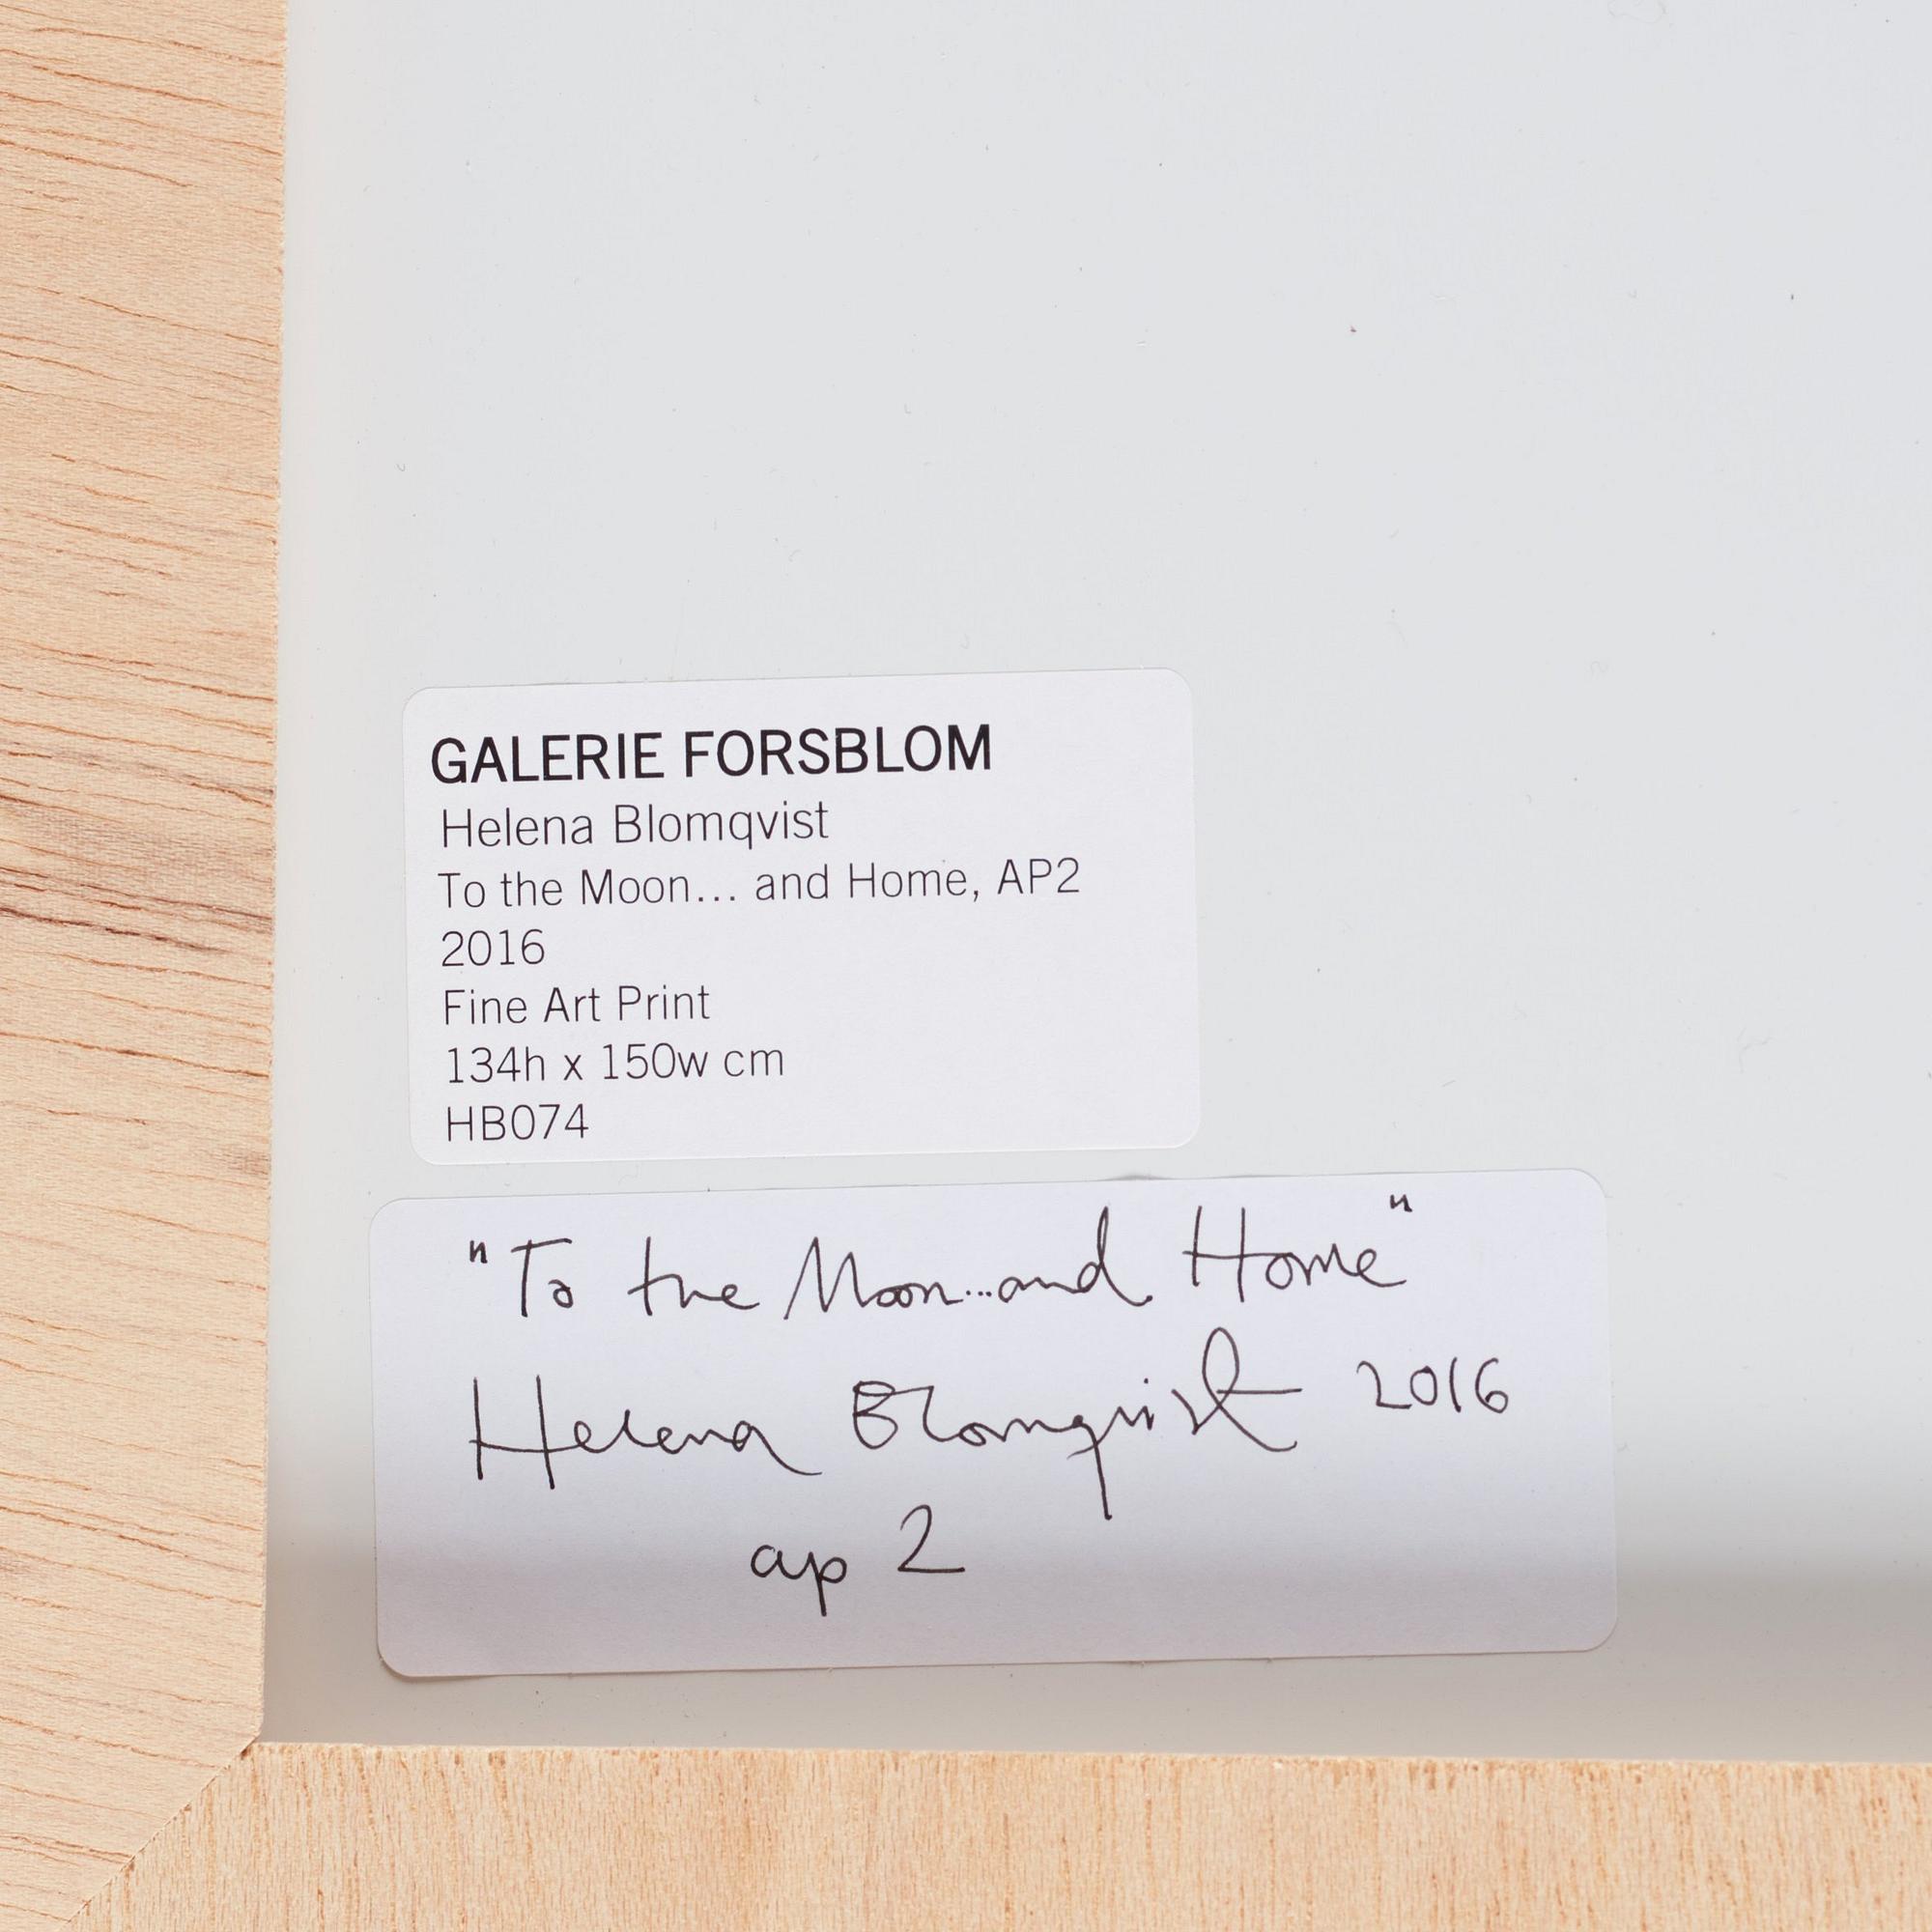 GALERIE FORSBLOM
Helena Blomqvist
To the Moon... and Home, AP2
2016
Fine Art Print
134h x 150w cm
HB074
"To the Moon...and Home"
Helena Blomqvist 2016
ap 2